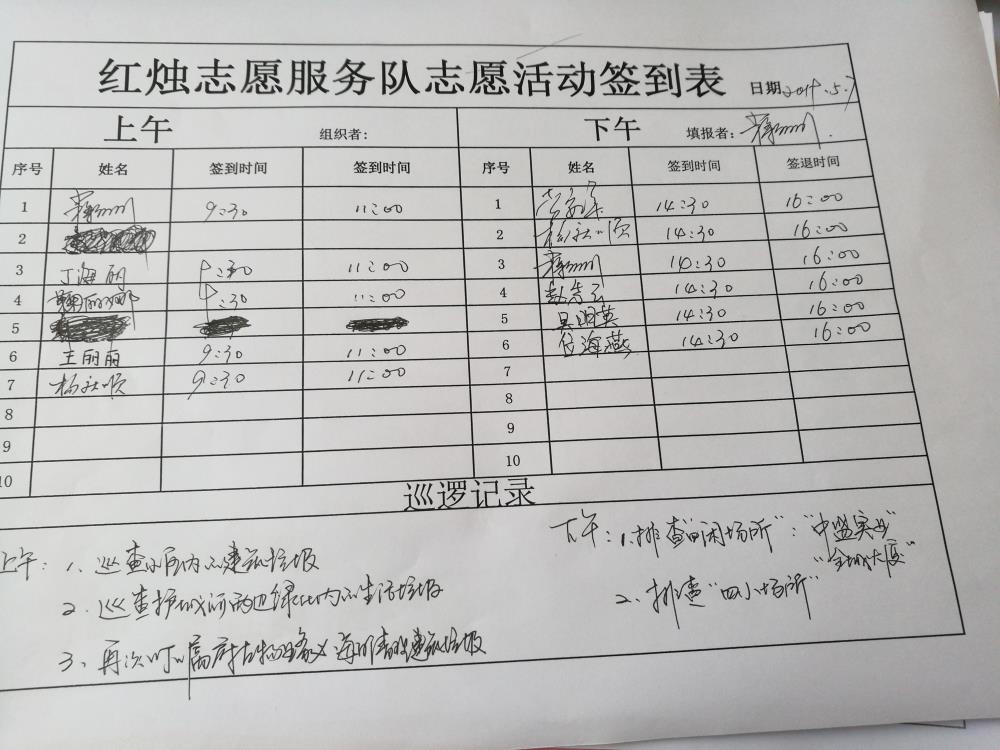 红烛志愿服务队志愿活动签到表
日期2019.5.7
上午 组织者： 下午 填报者：
序号 姓名 签到时间 签到时间 序号 姓名 签到时间 签退时间
1 9:30 11:00 1 14:30 16:00
2 2 杨社顺 14:30 16:00
3 丁海丽 9:30 11:00 3 14:30 16:00
4 9:30 11:00 4 14:30 16:00
5 5 吴明英 14:30 16:00
6 王丽丽 9:30 11:00 6 付海燕 14:30 16:00
7 杨社顺 9:30 11:00 7
8 8
9 9
10 10
巡逻记录
上午：1、巡查小区内的建筑垃圾
2、巡查护城河两边绿化内的生活垃圾
3、再次叮嘱 建筑垃圾
下午：1、排查"闲场所"："中盟实业"
2、排查"四小场所"